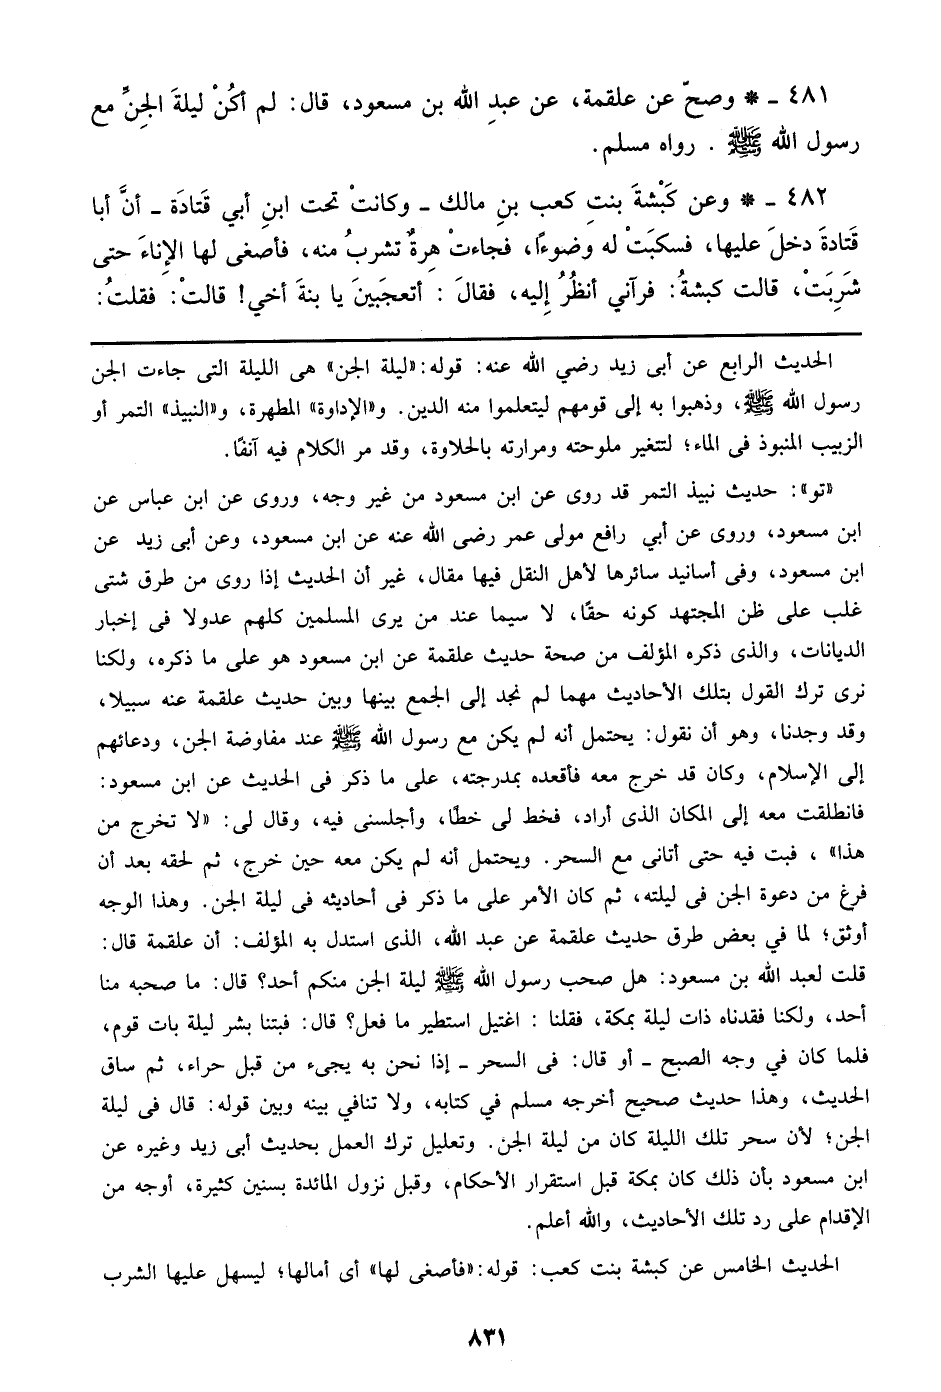 ٤٨١ ـ * وصحّ عن علقمة، عن عبدِ الله بن مسعود، قال: لم أكُنْ ليلةَ الجِنِّ مع
رسول الله ﷺ . رواه مسلم.
٤٨٢ ـ * وعن كَبْشةَ بنتِ كعب بنِ مالك ـ وكانتْ تحت ابنِ أبي قَتادَة ـ أنَّ أبا
قَتادةَ دخلَ عليها، فسكبَتْ له وضوءًا، فجاءتْ هِرةٌ تشربُ منه، فأصغى لها الإِناءَ حتى
شَرِبَتْ، قالت كبشةُ: فرآني أنظُرُ إِليه، فقالَ : أتعجَبينَ يا بنةَ أخي! قالتْ: فقلتُ:
الحديث الرابع عن أبى زيد رضي الله عنه: قوله:«ليلة الجن» هى الليلة التى جاءت الجن
رسول الله ﷺ، وذهبوا به إلى قومهم ليتعلموا منه الدين. و«الإداوة» المطهرة، و«النبيذ» التمر أو
الزبيب المنبوذ فى الماء؛ لتتغير ملوحته ومرارته بالحلاوة، وقد مر الكلام فيه آنفًا.
«تو»: حديث نبيذ التمر قد روى عن ابن مسعود من غير وجه، وروى عن ابن عباس عن
ابن مسعود، وروى عن أبي رافع مولى عمر رضى الله عنه عن ابن مسعود، وعن أبى زيد عن
ابن مسعود، وفى أسانيد سائرها لأهل النقل فيها مقال، غير أن الحديث إذا روى من طرق شتى
غلب على ظن المجتهد كونه حقًا، لا سيما عند من يرى المسلمين كلهم عدولا فى إخبار
الديانات، والذى ذكره المؤلف من صحة حديث علقمة عن ابن مسعود هو على ما ذكره، ولكنا
نرى ترك القول بتلك الأحاديث مهما لم نجد إلى الجمع بينها وبين حديث علقمة عنه سبيلا،
وقد وجدنا، وهو أن نقول: يحتمل أنه لم يكن مع رسول الله ﷺ عند مفاوضة الجن، ودعائهم
إلى الإسلام، وكان قد خرج معه فأقعده بمدرجته، على ما ذكر فى الحديث عن ابن مسعود:
فانطلقت معه إلى المكان الذى أراد، فخط لى خطًا، وأجلسنى فيه، وقال لى: «لا تخرج من
هذا» ، فبت فيه حتى أتانى مع السحر. ويحتمل أنه لم يكن معه حين خرج، ثم لحقه بعد أن
فرغ من دعوة الجن فى ليلته، ثم كان الأمر على ما ذكر فى أحاديثه فى ليلة الجن. وهذا الوجه
أوثق؛ لما في بعض طرق حديث علقمة عن عبد الله، الذى استدل به المؤلف: أن علقمة قال:
قلت لعبد الله بن مسعود: هل صحب رسول الله ﷺ ليلة الجن منكم أحد؟ قال: ما صحبه منا
أحد، ولكنا فقدناه ذات ليلة بمكة، فقلنا : اغتيل استطير ما فعل؟ قال: فبتنا بشر ليلة بات قوم،
فلما كان في وجه الصبح ـ أو قال: فى السحر ـ إذا نحن به يجىء من قبل حراء، ثم ساق
الحديث، وهذا حديث صحيح أخرجه مسلم في كتابه، ولا تنافي بينه وبين قوله: قال فى ليلة
الجن؛ لأن سحر تلك الليلة كان من ليلة الجن. وتعليل ترك العمل بحديث أبى زيد وغيره عن
ابن مسعود بأن ذلك كان بمكة قبل استقرار الأحكام، وقبل نزول المائدة بسنين كثيرة، أوجه من
الإقدام على رد تلك الأحاديث، والله أعلم.
الحديث الخامس عن كبشة بنت كعب: قوله:«فأصغى لها» أى أمالها؛ ليسهل عليها الشرب
٨٣١